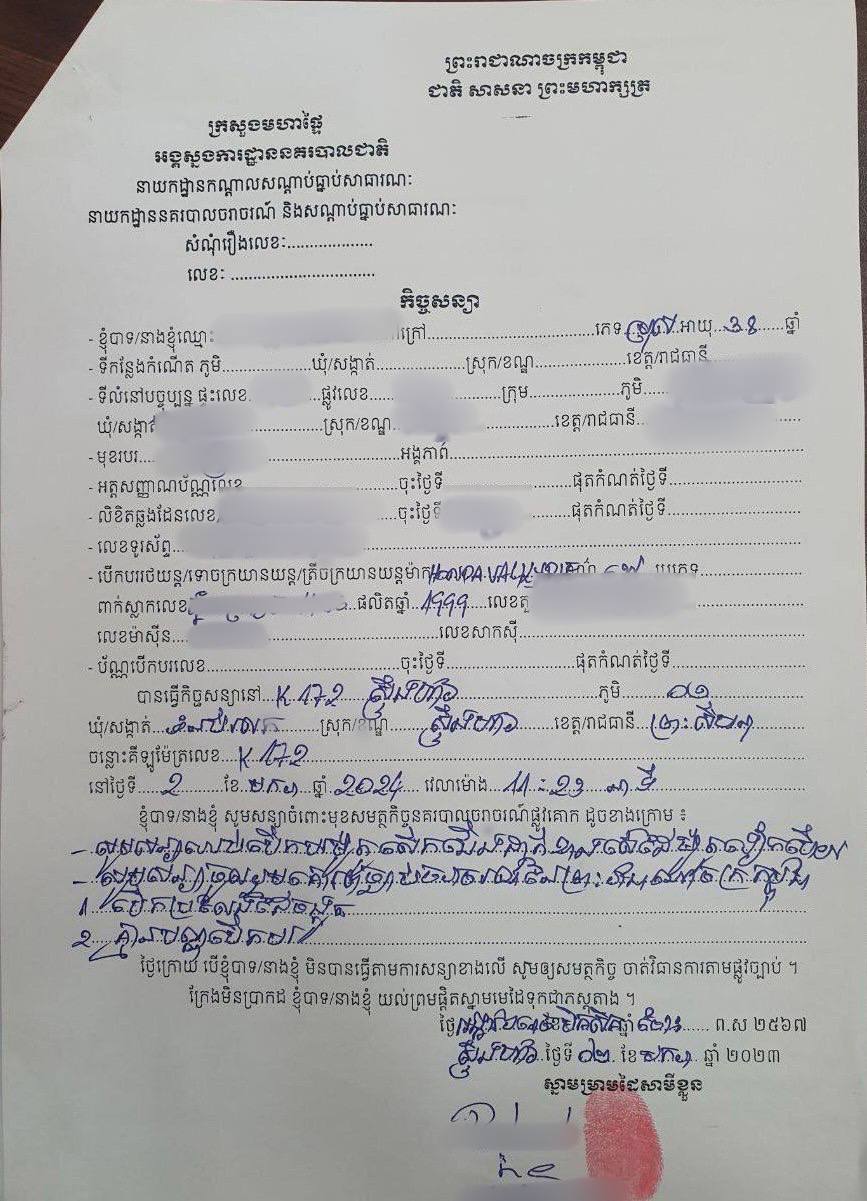 ព្រះរាជាណាចក្រកម្ពុជា
ជាតិ សាសនា ព្រះមហាក្សត្រ
ក្រសួងមហាផ្ទៃ
អគ្គស្នងការដ្ឋាននគរបាលជាតិ
នាយកដ្ឋានកណ្តាលសណ្តាប់ធ្នាប់សាធារណៈ
នាយកដ្ឋាននគរបាលចរាចរណ៍ និងសណ្តាប់ធ្នាប់សាធារណៈ
សំណុំរឿងលេខៈ...................
លេខៈ ................................
កិច្ចសន្យា
- ខ្ញុំបាទ/នាងខ្ញុំឈ្មោះ ក្រៅ..........ភេទ ប្រុស អាយុ...៣៨......ឆ្នាំ
- ទីកន្លែងកំណើត ភូមិ..........ឃុំ/សង្កាត់..........ស្រុក/ខណ្ឌ..........ខេត្ត/រាជធានី
- ទីលំនៅបច្ចុប្បន្ន ផ្ទះលេខ ....ផ្លូវលេខ.... ក្រុម..........ភូមិ
ឃុំ/សង្កាត់ ..........ស្រុក/ខណ្ឌ ..........ខេត្ត/រាជធានី
- មុខរបរ.... អង្គភាព..........
- អត្តសញ្ញាណប័ណ្ណលេខ ចុះថ្ងៃទី..........ផុតកំណត់ថ្ងៃទី..........
- លិខិតឆ្លងដែនលេខ ចុះថ្ងៃទី ..........ផុតកំណត់ថ្ងៃទី..........
- លេខទូរស័ព្ទ
- បើកបររថយន្ត/ទោចក្រយានយន្ត/ត្រីចក្រយានយន្តម៉ាក HONDA ប្រភេទ..........
ពាក់ស្លាកលេខ ផលិតឆ្នាំ..1999.....លេខតួ
លេខម៉ាស៊ីន..... លេខសាកស៊ី..........
- ប័ណ្ណបើកបរលេខ..........ចុះថ្ងៃទី..........ផុតកំណត់ថ្ងៃទី..........
បានធ្វើកិច្ចសន្យានៅ...K 172 ស្ទឹងហាវ..........ភូមិ....០១
ឃុំ/សង្កាត់ ស្រុក/ខណ្ឌ ស្ទឹងហាវ ខេត្ត/រាជធានី ព្រះសីហនុ
ចន្លោះគីឡូម៉ែត្រលេខ...K 172
នៅថ្ងៃទី....2......ខែ.មករា...ឆ្នាំ..2024....វេលាម៉ោង..11 : 23 នាទី
ខ្ញុំបាទ/នាងខ្ញុំ សូមសន្យាចំពោះមុខសមត្ថកិច្ចនគរបាលចរាចរណ៍ផ្លូវគោក ដូចខាងក្រោម ៖
- សូមសន្យា
- សូមសន្យាចូលរួមគោរពច្បាប់ចរាចរណ៍នៃព្រះរាជាណាចក្រកម្ពុជា
1. បើកប្រឡែងដៃចង្កូត
2. គ្មានបណ្ណបើកបរ
ថ្ងៃក្រោយ បើខ្ញុំបាទ/នាងខ្ញុំ មិនបានធ្វើតាមការសន្យាខាងលើ សូមឲ្យសមត្ថកិច្ច ចាត់វិធានការតាមផ្លូវច្បាប់ ។
ក្រែងមិនប្រាកដ ខ្ញុំបាទ/នាងខ្ញុំ យល់ព្រមផ្តិតស្នាមមេដៃទុកជាភស្តុតាង ។
ថ្ងៃ ខែ ឆ្នាំ ថោះ...... ព.ស ២៥៦៧
ស្ទឹងហាវ ថ្ងៃទី ០២. ខែ មករា.. ឆ្នាំ ២០២៣
ស្នាមម្រាមដៃសាមីខ្លួន